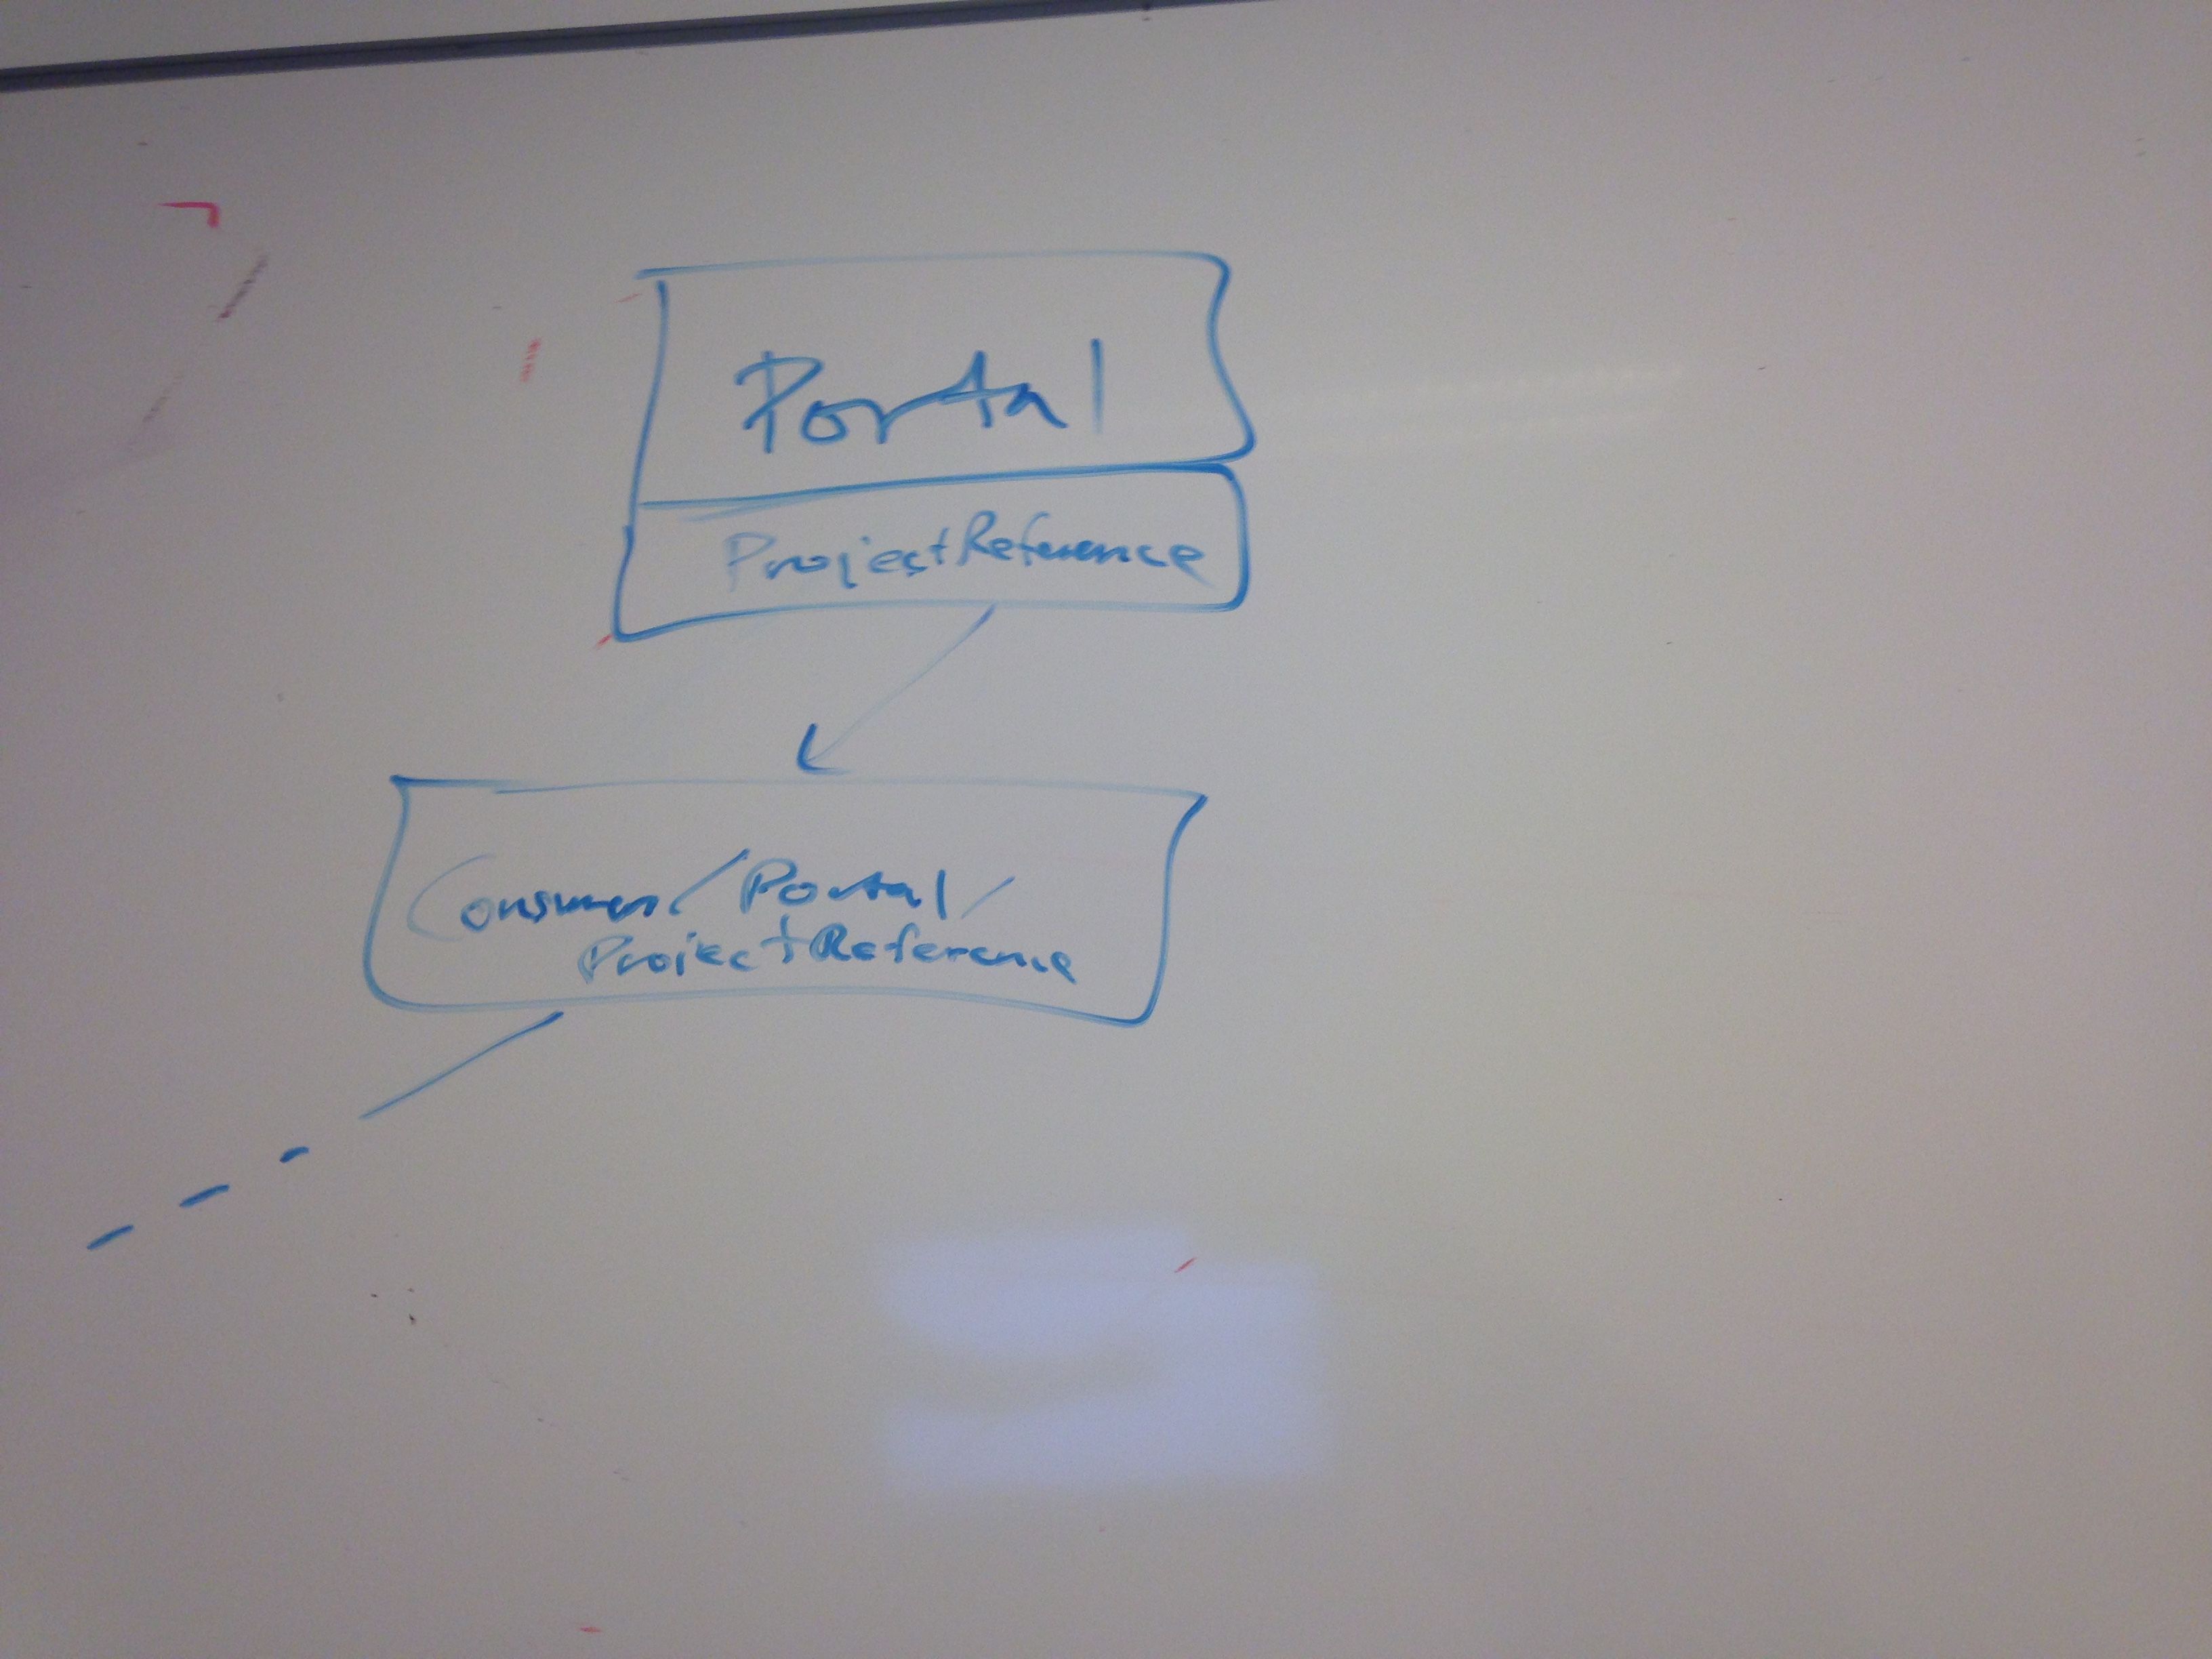 Portal
ProjectReference
Consumer/Portal/
ProjectReference